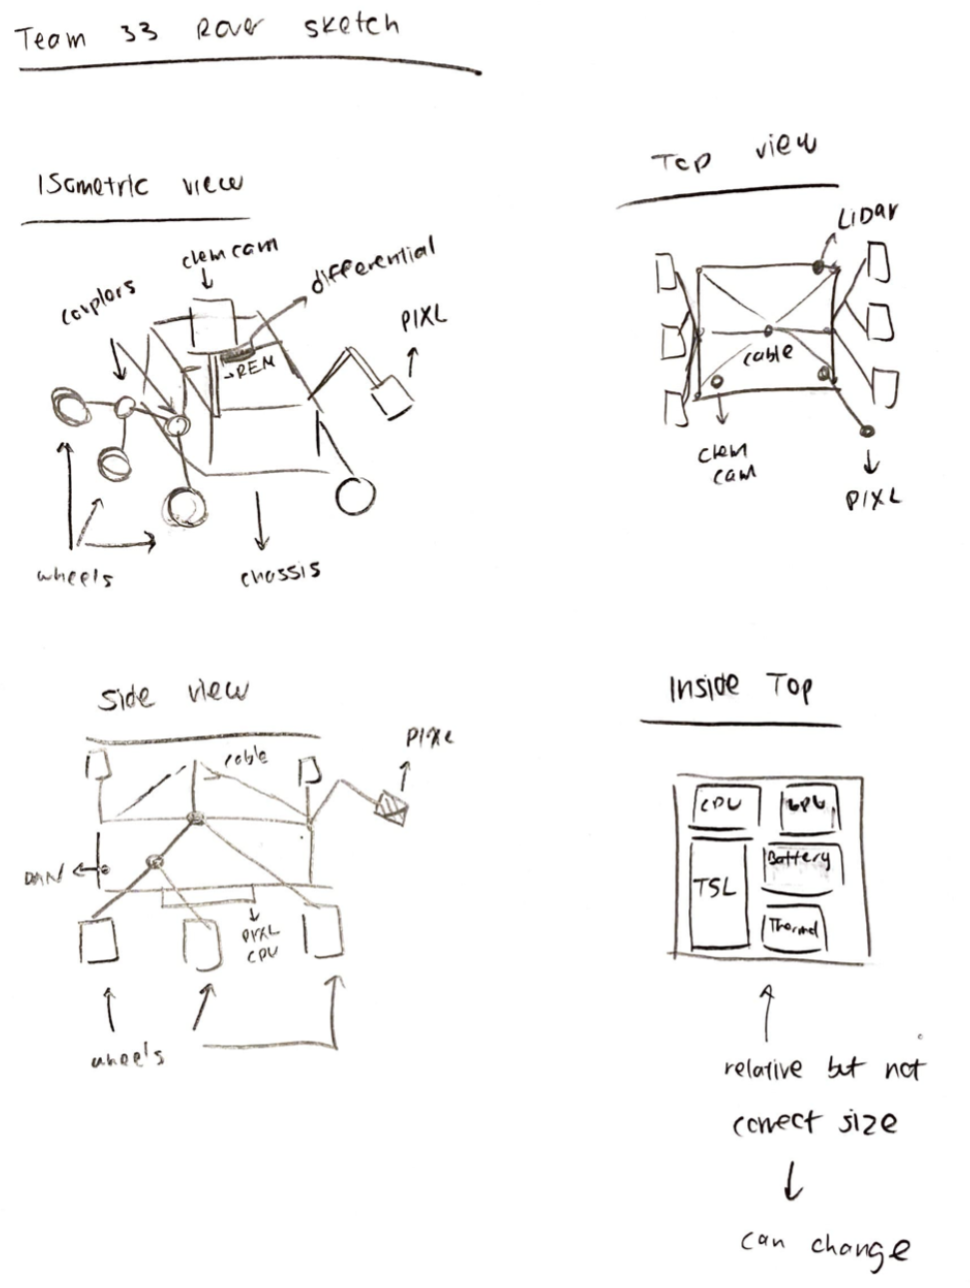 Team 33 Rover sketch
Isometric view
clem cam
differential
couplors
PIXL
→REM
wheels
chassis
Top view
LiDar
cable
clem
cam
PIXL
Side view
cable
PIXL
DAN
PIXL
CPU
wheels
Inside Top
CPU
Battery
TSL
Thermal
relative but not
correct size
can change